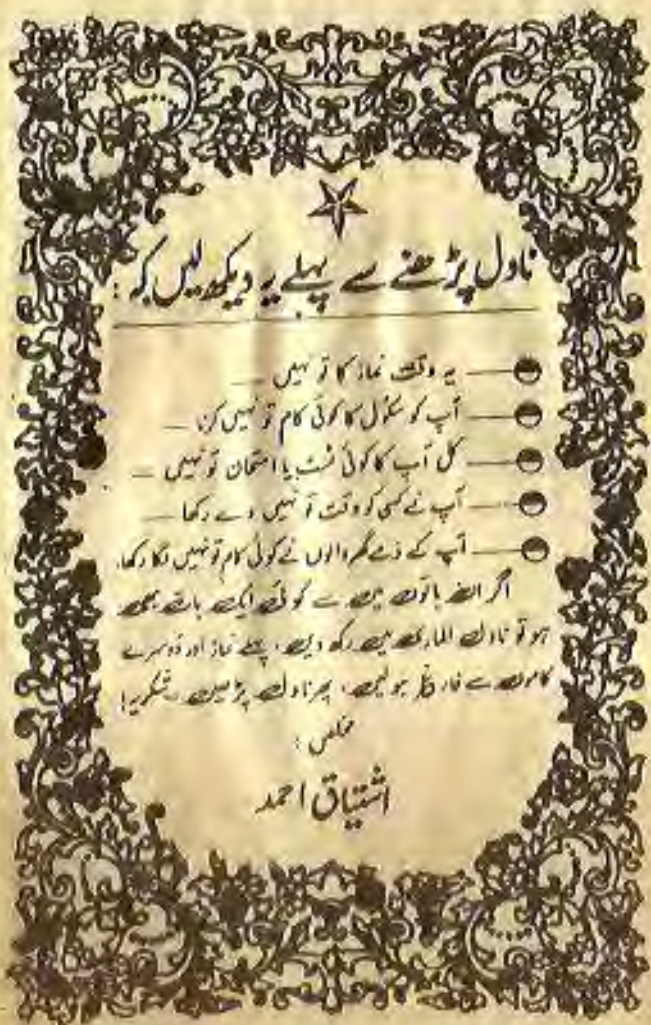 ناول پڑھنے سے پہلے یہ دیکھ لیں کہ :
یہ وقت نماز کا تو نہیں ـــ
آپ کو سکول کا کوئی کام تو نہیں کرنا ـــ
کل آپ کا کوئی ٹسٹ یا امتحان تو نہیں ـــ
آپ نے کسی کو وقت تو نہیں دے رکھا ـــ
آپ کے ذمے گھر والوں نے کوئی کام تو نہیں لگا رکھا۔
اگر ان باتوں میں سے کوئی ایک بات بھی
ہو تو ناول الماری میں رکھ دیں، پہلے نماز اور دوسرے
کاموں سے فارغ ہو لیں، پھر ناول پڑھیں ۔ شکریہ!
مخلص :
اشتیاق احمد